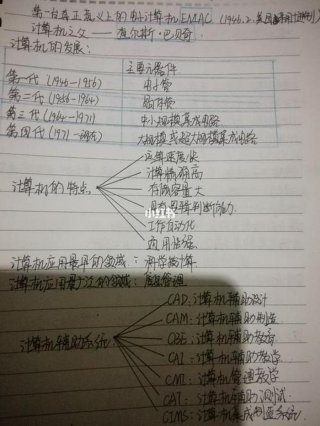 第一台真正意义上的电子计算机ENIAC (1946.2.美国
计算机之父——查尔斯·巴贝奇
计算机的发展:
主要元器件
第一代 (1946-1956) 电子管
第二代 (1956-1964) 晶体管
第三代 (1964-1971) 中小规模集成电路
第四代 (1971-现在) 大规模或超大规模集成电路
计算机的特点
运算速度快
计算精确高
存储容量大
具有逻辑判断能力
工作自动化
通用性强
小红书
计算机应用最早的领域:科学计算
计算机应用最广泛的领域:管理
计算机辅助系统
CAD:计算机辅助设计
CAM:计算机辅助制造
CBE:计算机辅助教育
CAI:计算机辅助教学
CMI:计算机管理教学
CAT:计算机辅助测试
CIMS:计算机集成制造系统